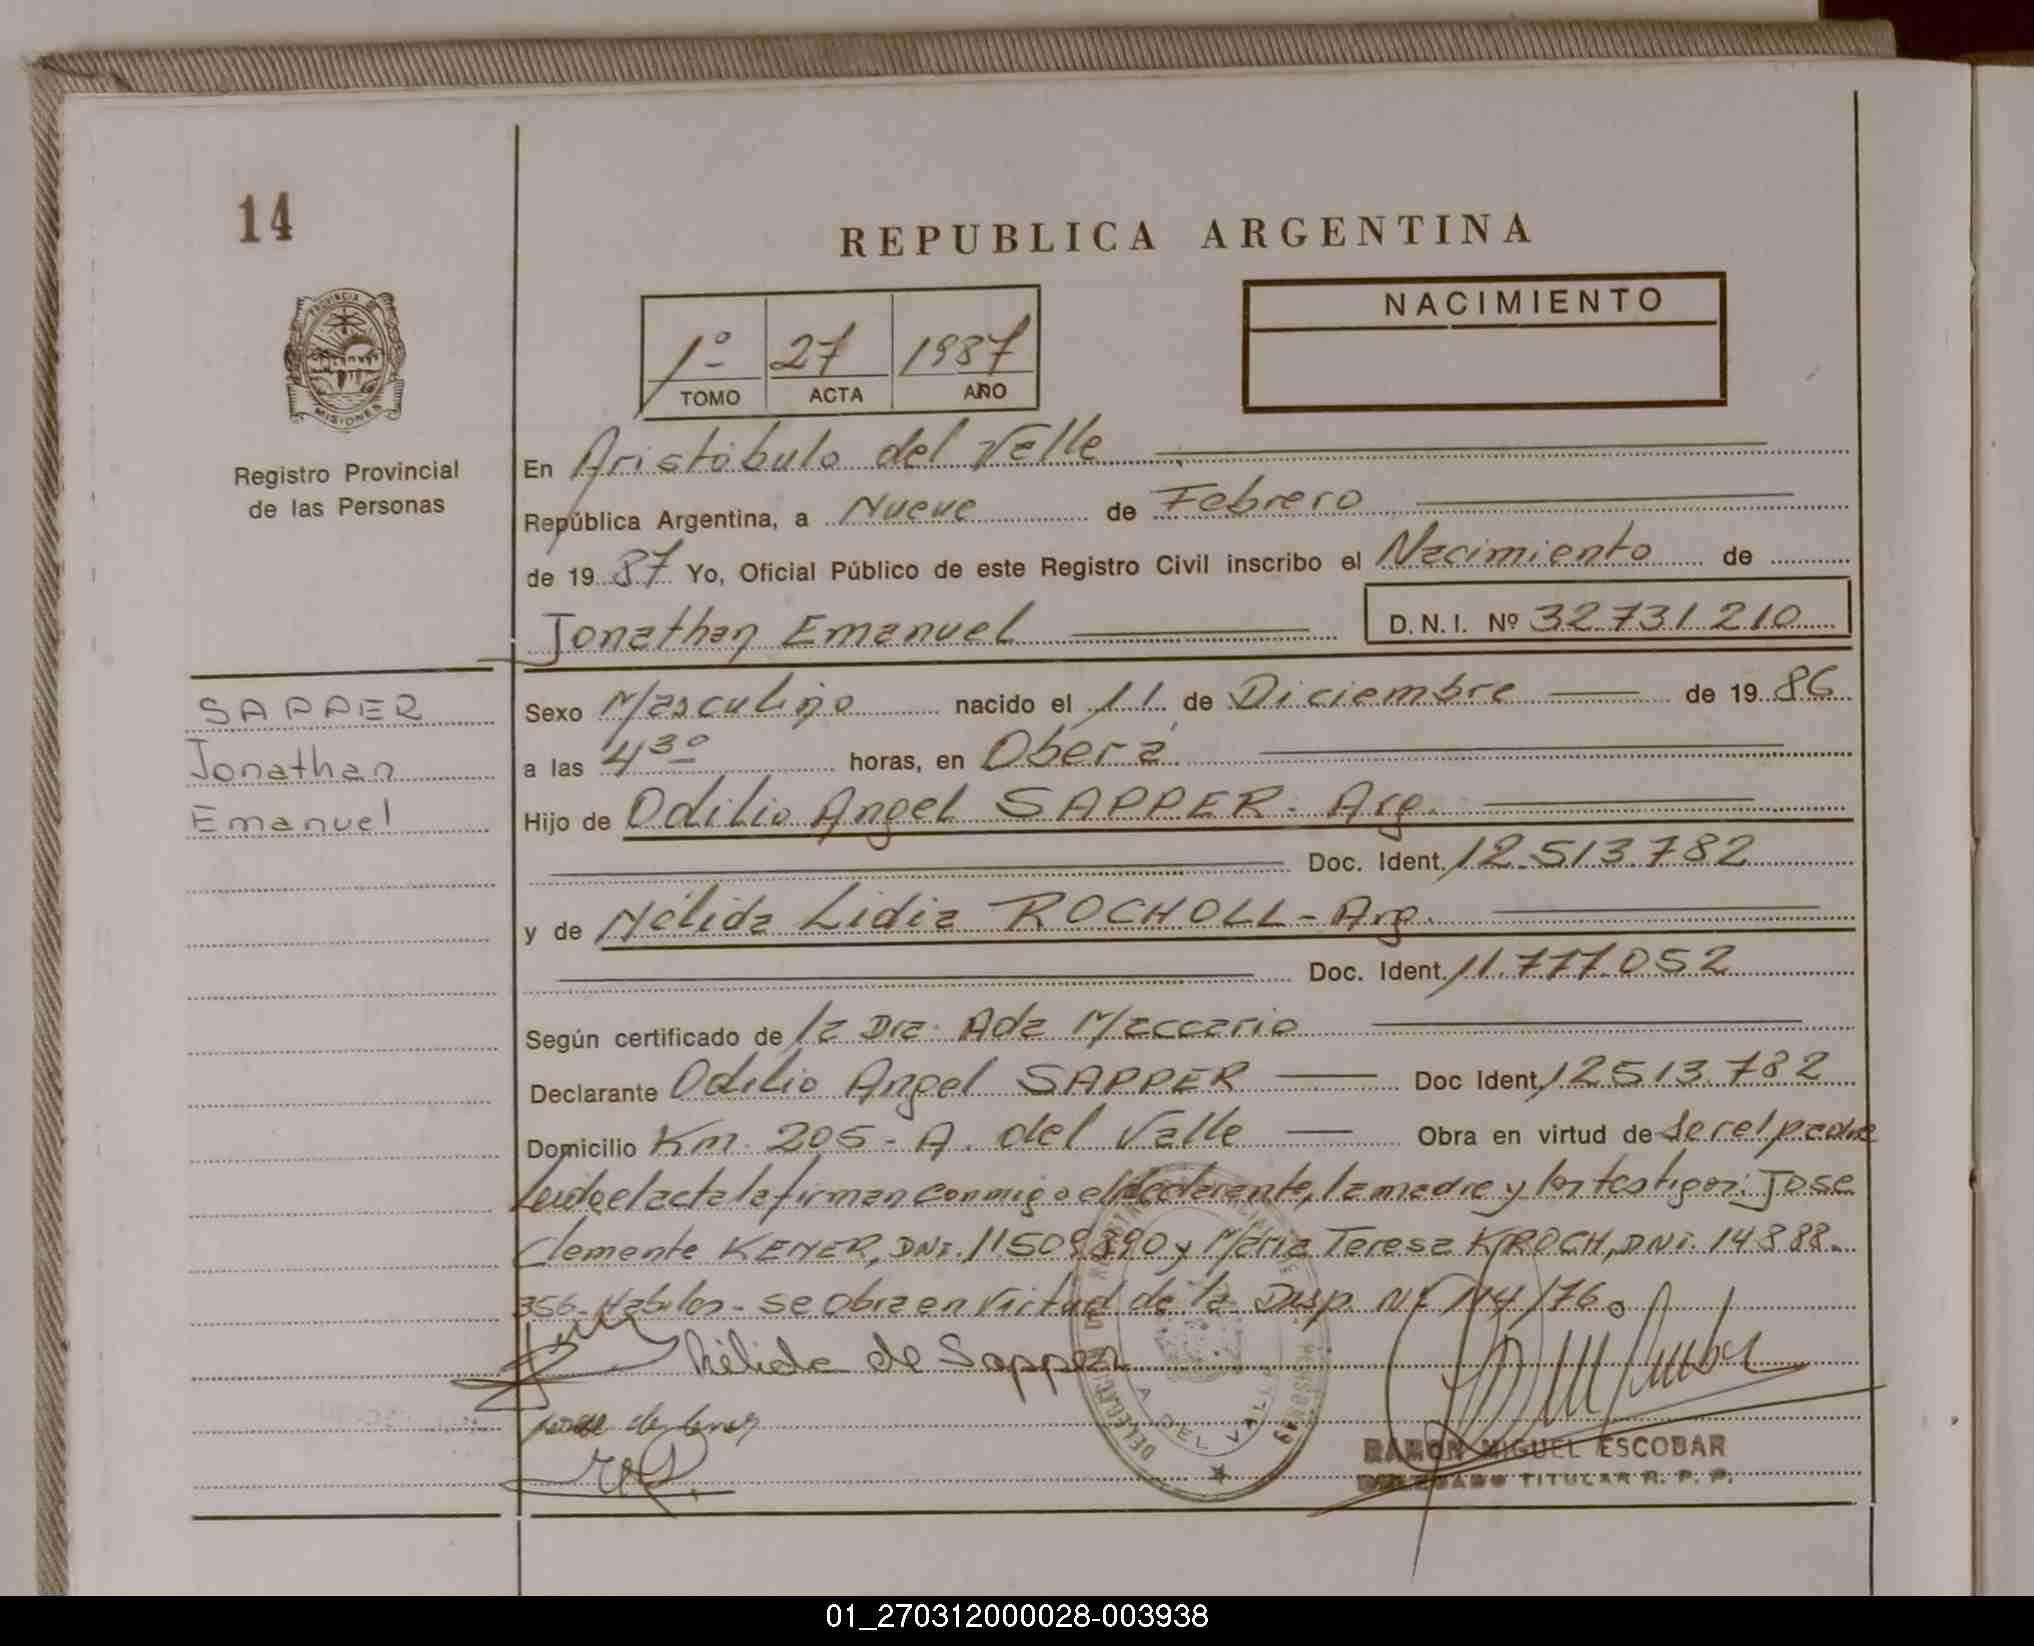 14
REPUBLICA ARGENTINA
PROVINCIA DE
MISIONES
Registro Provincial
de las Personas
1º 27 1987
TOMO ACTA AÑO
NACIMIENTO
En Aristóbulo del Valle
República Argentina, a Nueve de Febrero
de 19 87 Yo, Oficial Público de este Registro Civil inscribo el Nacimiento de
Jonathan Emanuel D.N.I. Nº 32731210
SAPPER
Jonathan
Emanuel
Sexo Masculino nacido el 11 de Diciembre de 19 86
a las 4³º horas, en Oberá
Hijo de Odilio Angel SAPPER - Arg.
Doc. Ident. 12.513.782
y de Nélida Lidia ROCHOLL - Arg.
Doc. Ident. 11.777.052
Según certificado de la Dra. Ada Maccario
Declarante Odilio Angel SAPPER Doc Ident. 12513782
Domicilio Km. 205 - A. del Valle Obra en virtud de ser el padre
Leido el acta la firman conmigo el declarante, la madre y los testigos: Jose
Clemente KENER, DNI. 11509890 y Maria Teresa KROCH, DNI. 14888.
356- Habiles - se obra en virtud de la Disp. Nº 114/76.
Nélida de Sapper
A. DEL VALLE
RAMON MIGUEL ESCOBAR
DELEGADO TITULAR R. P. P.
01_270312000028-003938